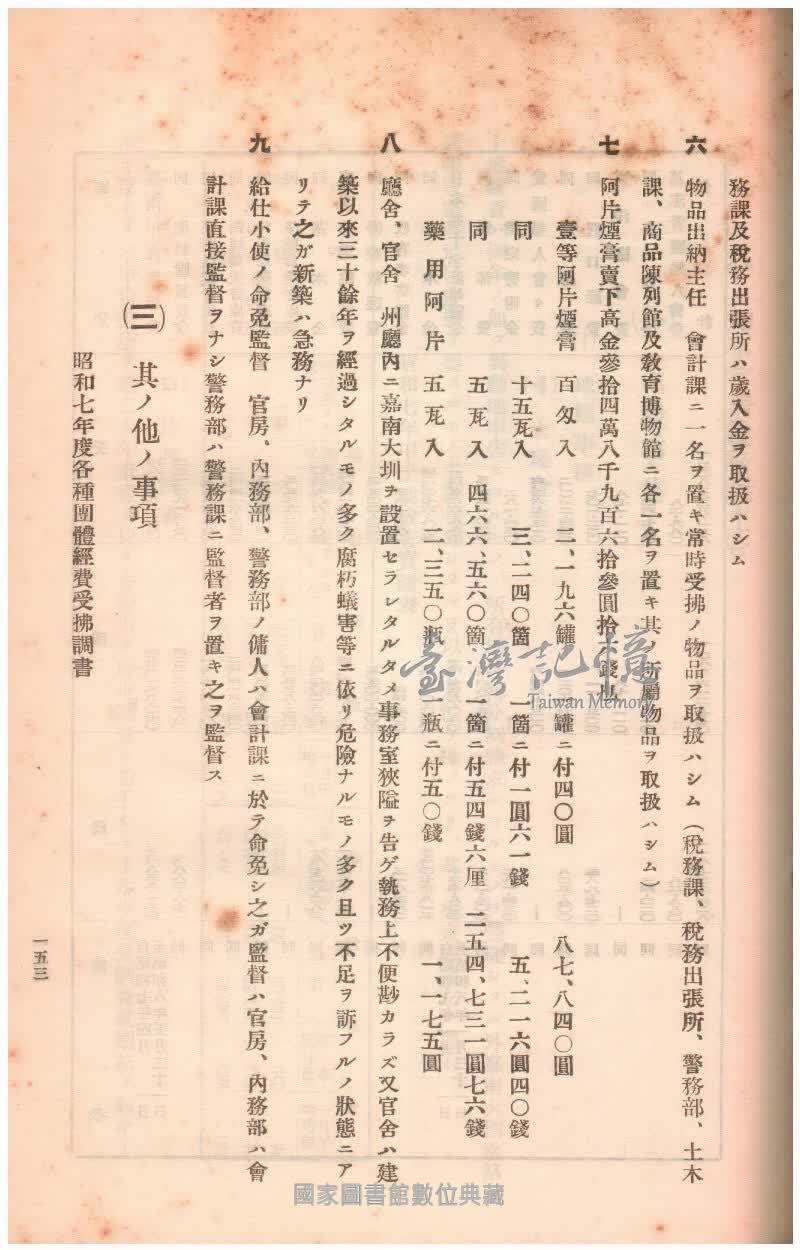 務課及稅務出張所ハ歲入金ヲ取扱ハシム
六 物品出納主任 會計課ニ一名ヲ置キ常時受拂ノ物品ヲ取扱ハシム（稅務課、稅務出張所、警務部、土木
課、商品陳列館及敎育博物館ニ各一名ヲ置キ其ノ所屬物品ヲ取扱ハシム）
七 阿片煙膏賣下高金參拾四萬八千九百六拾參圓拾六錢也
壹等阿片煙膏 百匁入 二、一九六罐 一罐ニ付四〇圓 八七、八四〇圓
同 十五瓦入 三、二四〇箇 一箇ニ付一圓六一錢 五、二一六圓四〇錢
同 五瓦入 四六六、五六〇箇 一箇ニ付五四錢六厘 二五四、七三一圓七六錢
藥用阿片 五瓦入 二、三五〇瓶 一瓶ニ付五〇錢 一、一七五圓
八 廳舍、官舍 州廳內ニ嘉南大圳ヲ設置セラレタルタメ事務室狹隘ヲ告ゲ執務上不便尠カラズ又官舍ハ建
築以來三十餘年ヲ經過シタルモノ多ク腐朽蟻害等ニ依リ危險ナルモノ多ク且ツ不足ヲ訴フルノ狀態ニア
リテ之ガ新築ハ急務ナリ
九 給仕小使ノ命免監督 官房、內務部、警務部ノ傭人ハ會計課ニ於テ命免シ之ガ監督ハ官房、內務部ハ會
計課直接監督ヲナシ警務部ハ警務課ニ監督者ヲ置キ之ヲ監督ス
(三) 其ノ他ノ事項
昭和七年度各種團體經費受拂調書
一五三
臺灣記憶
Taiwan Memory
國家圖書館數位典藏